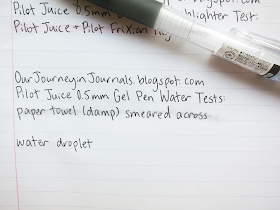 Pilot Juice 0.5mm
blogspot.com
blighter Test:
Pilot Juice + Pilot FriXion
OurJourneyinJournals.blogspot.com
Pilot Juice 0.5mm Gel Pen Water Tests:
paper towel (damp) smeared across
water droplet